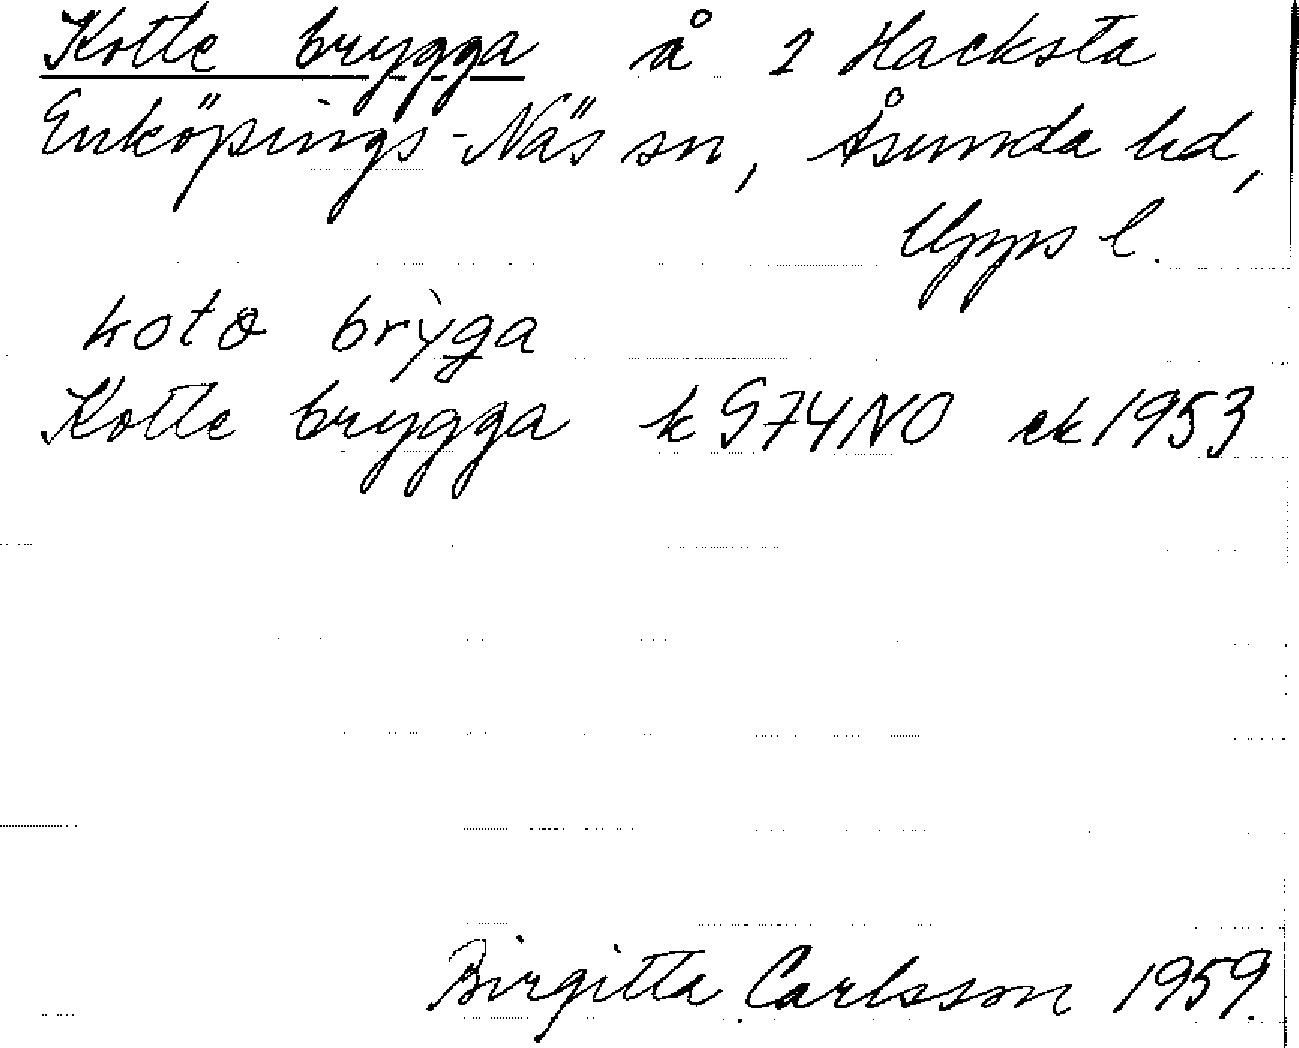 Kotte brygga å 1 Hacksta
Enköpings-Näs sn, Åsunda hd,
Upps l.
kotə brỳga
Kotte brygga k G74NO ek 1953
Birgitta Carlsson 1959.